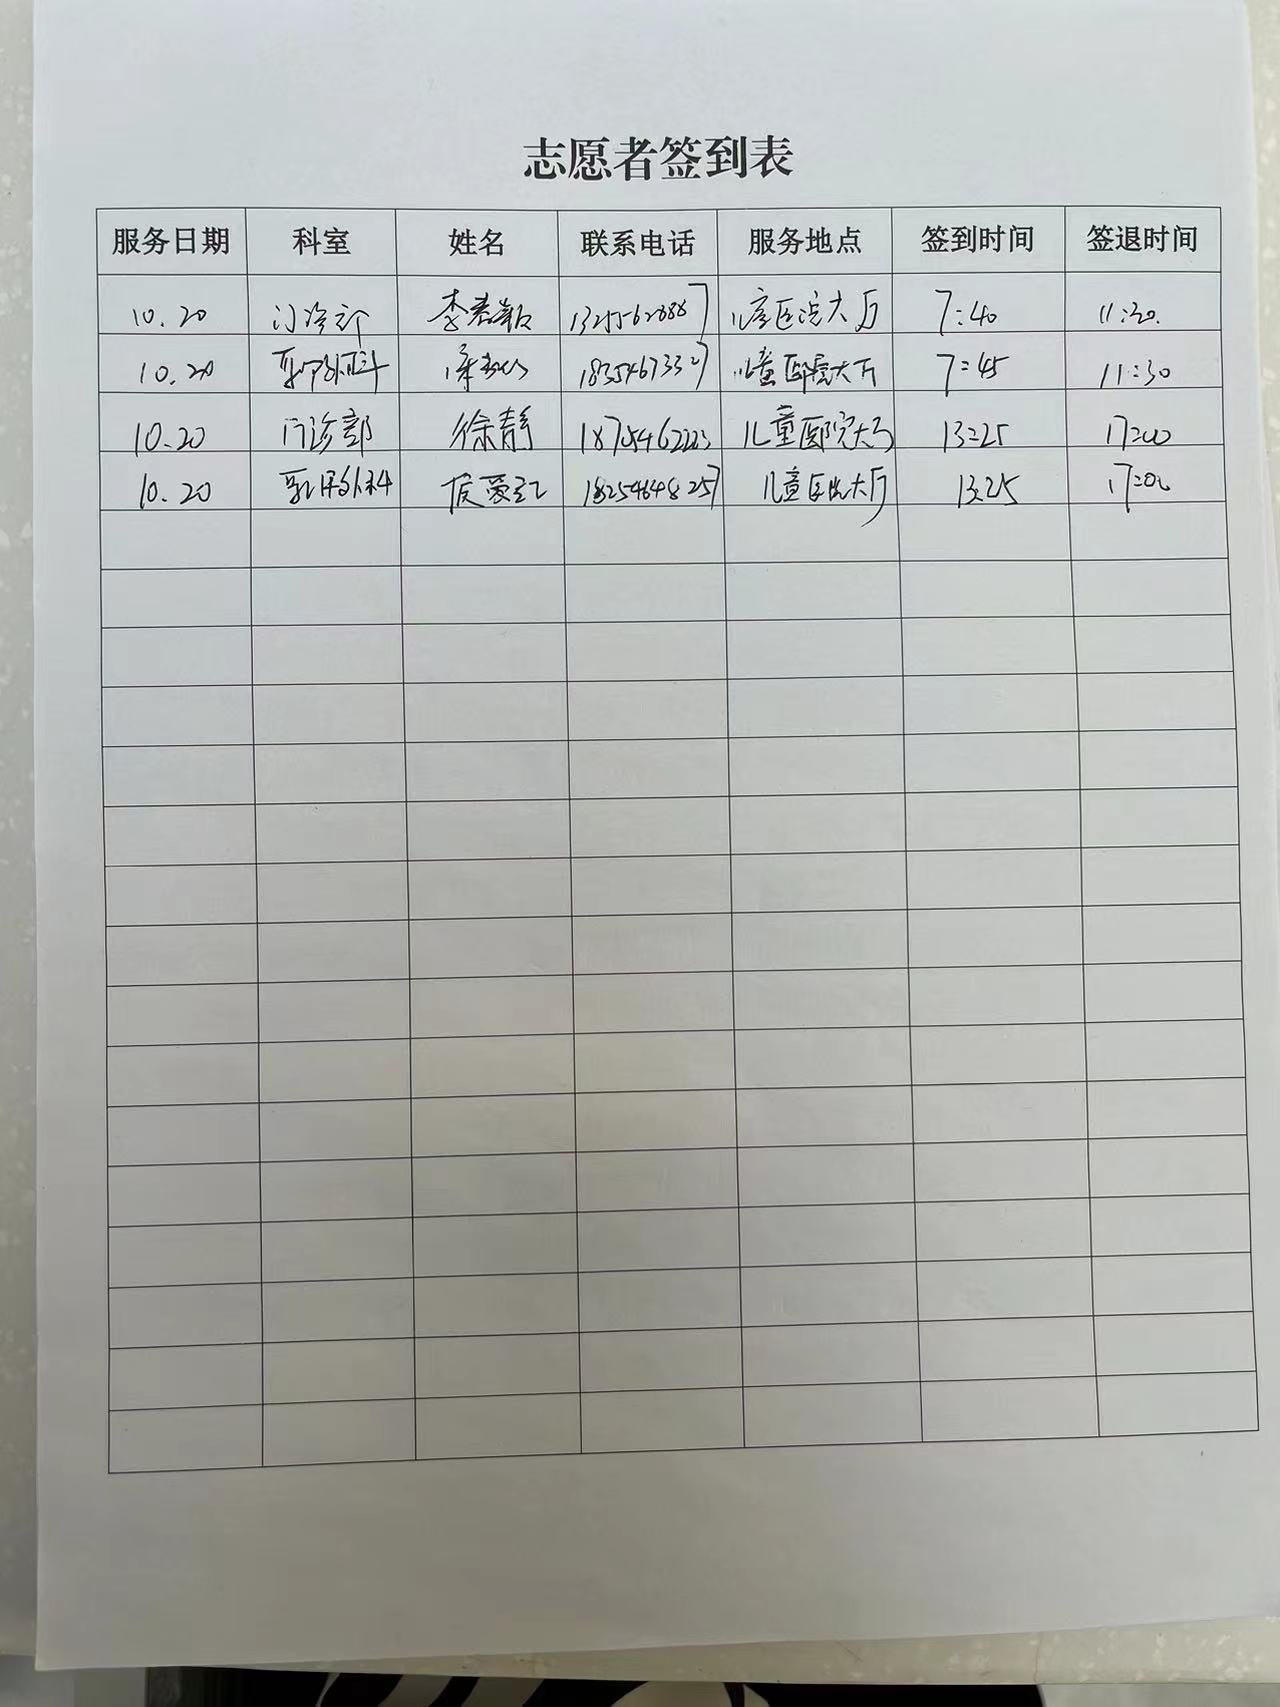 志愿者签到表
服务日期 科室 姓名 联系电话 服务地点 签到时间 签退时间
10.20 门诊部 李春颖 儿童医院大厅 7:40 11:30
10.20 乳甲外科 18354673327 儿童医院大厅 7:45 11:30
10.20 门诊部 徐静 18754622223 儿童医院大厅 13:25 17:00
10.20 乳甲外科 18254648257 儿童医院大厅 13:25 17:00